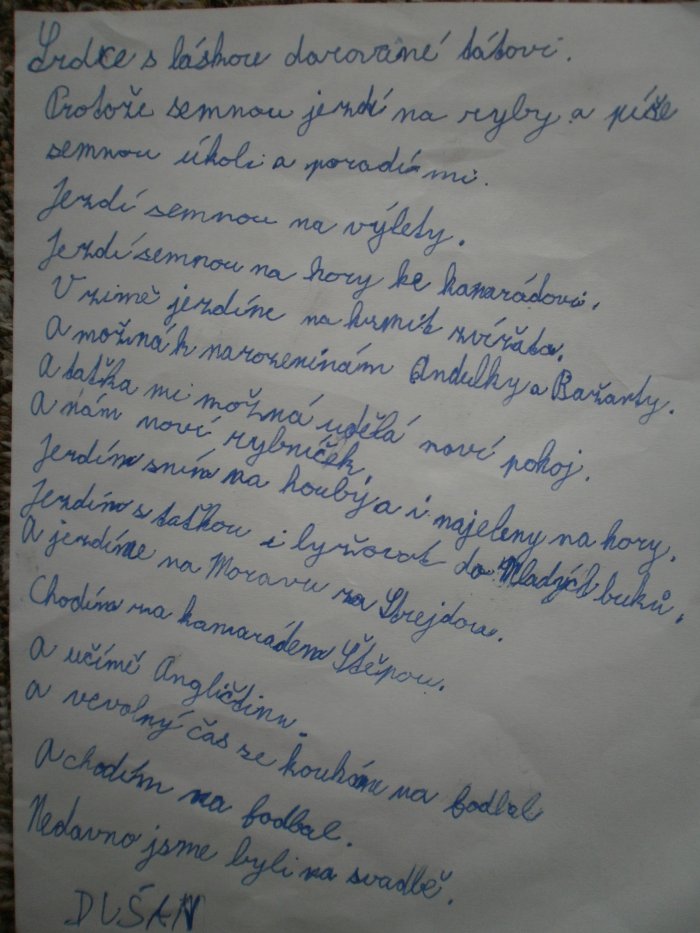 Srdce s láskou darované tátovi.
Protože semnou jezdí na ryby a píše
semnou úkoli a poradí mi.
Jezdí semnou na výlety.
Jezdí semnou na hory ke kamarádovi.
V zimě jezdíme na krmit zvířata.
A možná k narozeninám Andulky a Bažanty.
A taťka mi možná udělá noví pokoj.
A nám noví rybníček
Jezdím sním na houbý a i najeleny na hory.
Jezdím s taťkou i lyžovat do Mladých buků.
A jezdíme na Moravu za Strejdou.
Chodím za kamarádem Štěpou.
A učímě Angličtinu.
A vevolný čas se koukáme na fodbal
A chodím na fodbal.
Nedavno jsme byli na svadbě.
DUŠAN